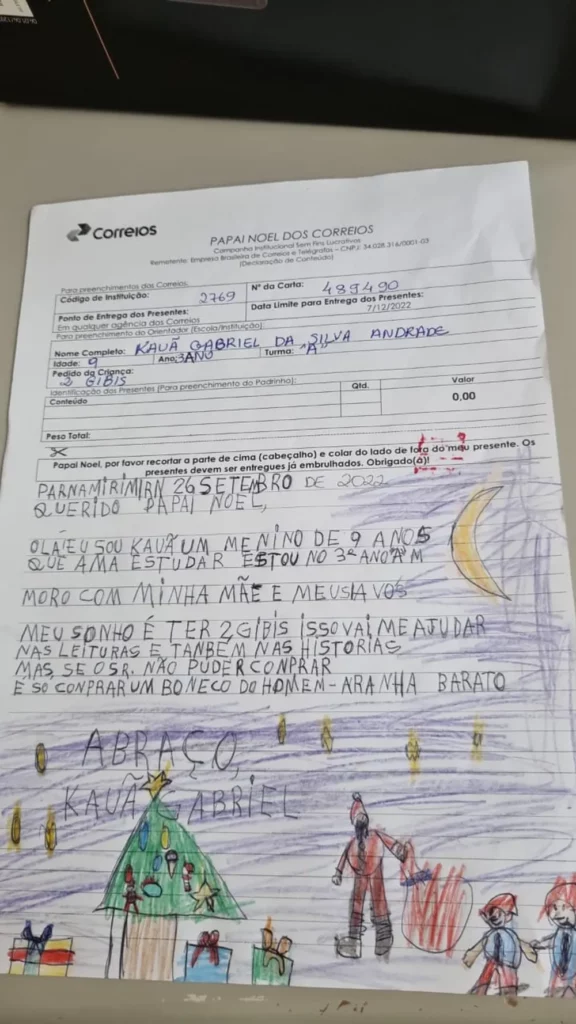 Correios
PAPAI NOEL DOS CORREIOS
Campanha Institucional Sem Fins Lucrativos
Remetente: Empresa Brasileira de Correios e Telégrafos - CNPJ: 34.028.316/0001-03
(Declaração de Conteúdo)
Para preenchimentos dos Correios:
Código de Instituição: 2769
Nº da Carta: 489490
Ponto de Entrega dos Presentes:
Em qualquer agência dos Correios
Data Limite para Entrega dos Presentes:
7/12/2022
Para preenchimento do Orientador (Escola/Instituição):
Nome Completo: KAUÃ GABRIEL DA SILVA ANDRADE
Idade: 9 Ano: 3ANO Turma: "A"
Pedido da Criança:
2 GIBIS
Identificação dos Presentes (Para preenchimento do Padrinho):
Conteúdo Qtd. Valor
0,00
Peso Total:
Papai Noel, por favor recortar a parte de cima (cabeçalho) e colar do lado de fora do meu presente. Os
presentes devem ser entregues já embrulhados. Obrigado(a)!
PARNAMIRIMIRN 26 SETEMBRO DE 2022
QUERIDO PAPAI NOEL,
OLA! EU SOU KAUÃ UM MENINO DE 9 ANOS
QUE AMA ESTUDAR ESTOU NO 3º ANO A M
MORO COM MINHA MÃE E MEUSIA VOS
MEU SONHO É TER 2 GIBIS ISSO VAI ME AJUDAR
NAS LEITURAS E TANBEM NAS HISTORIAS
MAS, SE O SR. NÃO PUDER CONPRAR
E SO CONPRAR UM BONECO DO HOMEN-ARANHA BARATO
ABRAÇO,
KAUÃ GABRIEL